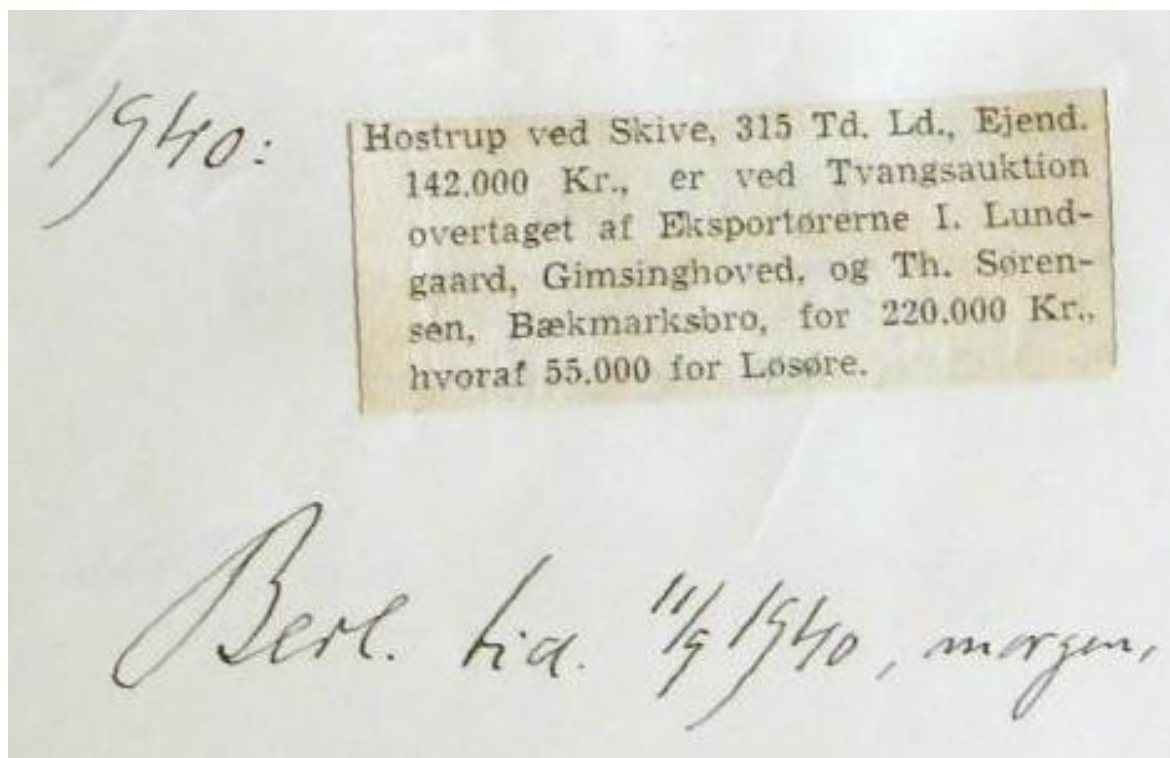 1940:
Hostrup ved Skive, 315 Td. Ld., Ejend.
142.000 Kr., er ved Tvangsauktion
overtaget af Eksportørerne I. Lund-
gaard, Gimsinghoved, og Th. Søren-
sen, Bækmarksbro, for 220.000 Kr.,
hvoraf 55.000 for Løsøre.
Berl. tid. 11/9 1940, morgen,